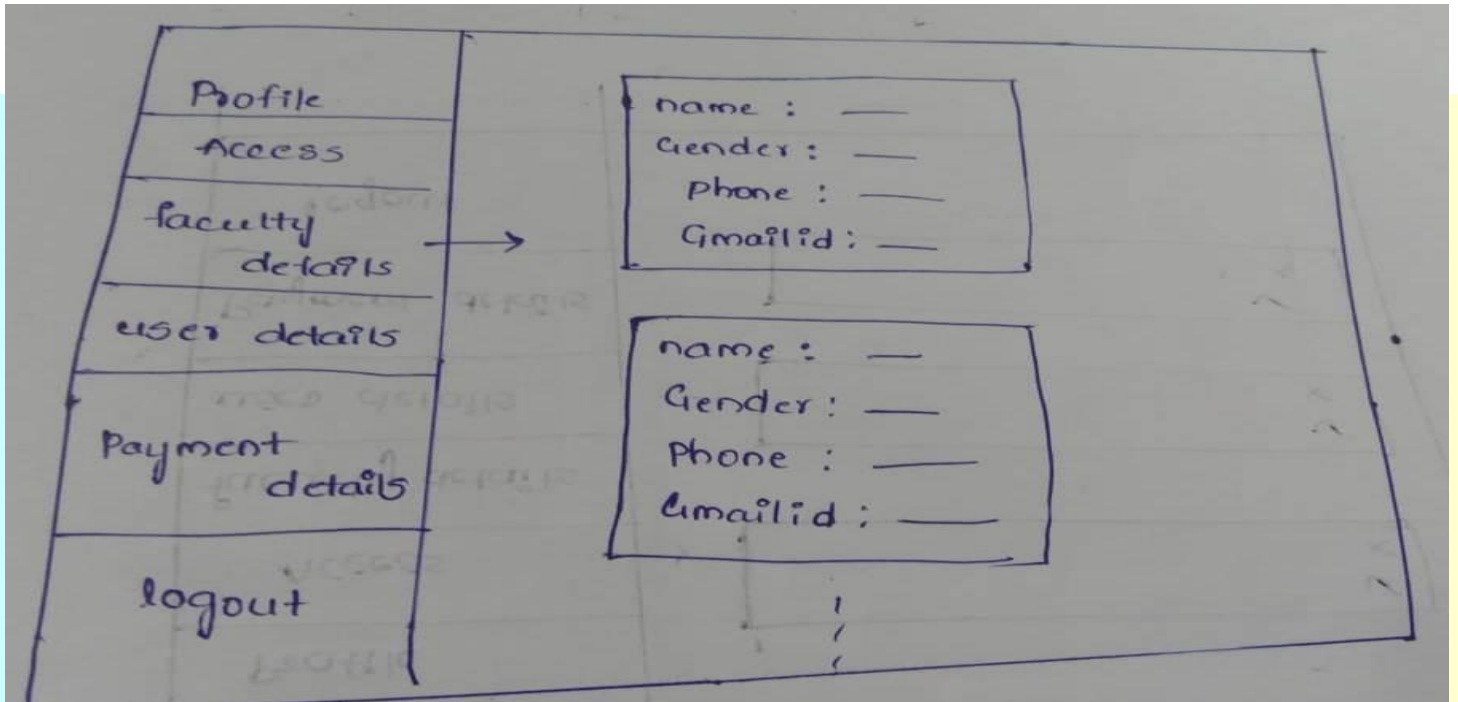 Profile
Access
faculty
details
user details
Payment
details
logout
name :
Gender :
phone :
Gmailid :
name :
Gender :
Phone :
Gmailid :